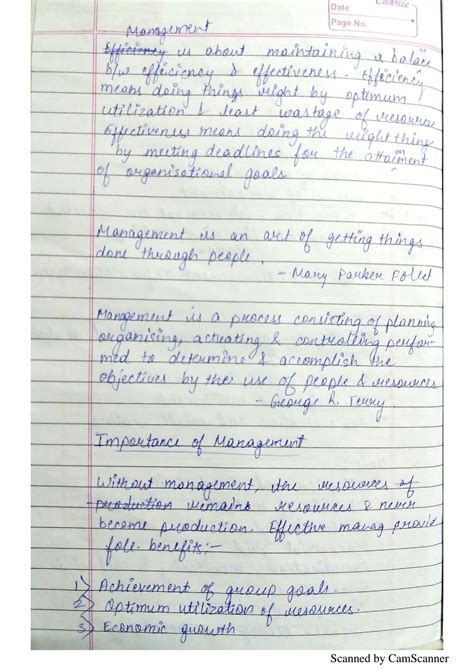 Classic
Date
Page No.
Management
Efficiency is about maintaining a balace
b/w efficiency & effectiveness. Efficiency
means doing things right by optimum
utilization & least wastage of resources
Effectiveness means doing the right thing
by meeting deadlines for the attaiment
of organisational goals
Management is an art of getting things
done through people.
- Mary Parker Follet
Management is a process consisting of planning
organising, actuating & controlling perfor-
med to determine & accomplish the
objectives by the use of people & resources
- George R. Terry.
Importance of Management
Without management, the resources of
production remains resources & never
become production. Effective manag provid
foll. benefits:-
1) Achievement of group goals.
2) Optimum utilization of resources.
3) Economic growth
Scanned by CamScanner